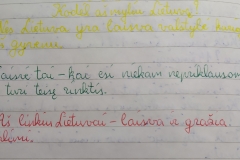 Kodėl aš myliu Lietuvą?
Lietuva yra laisva valstybė kurioje
gyvenu.
Laisvė tai – kac esi niekam nepriklausomas
turi teisę rinktis.
Aš linkiu Lietuvai – laisva ir gražia